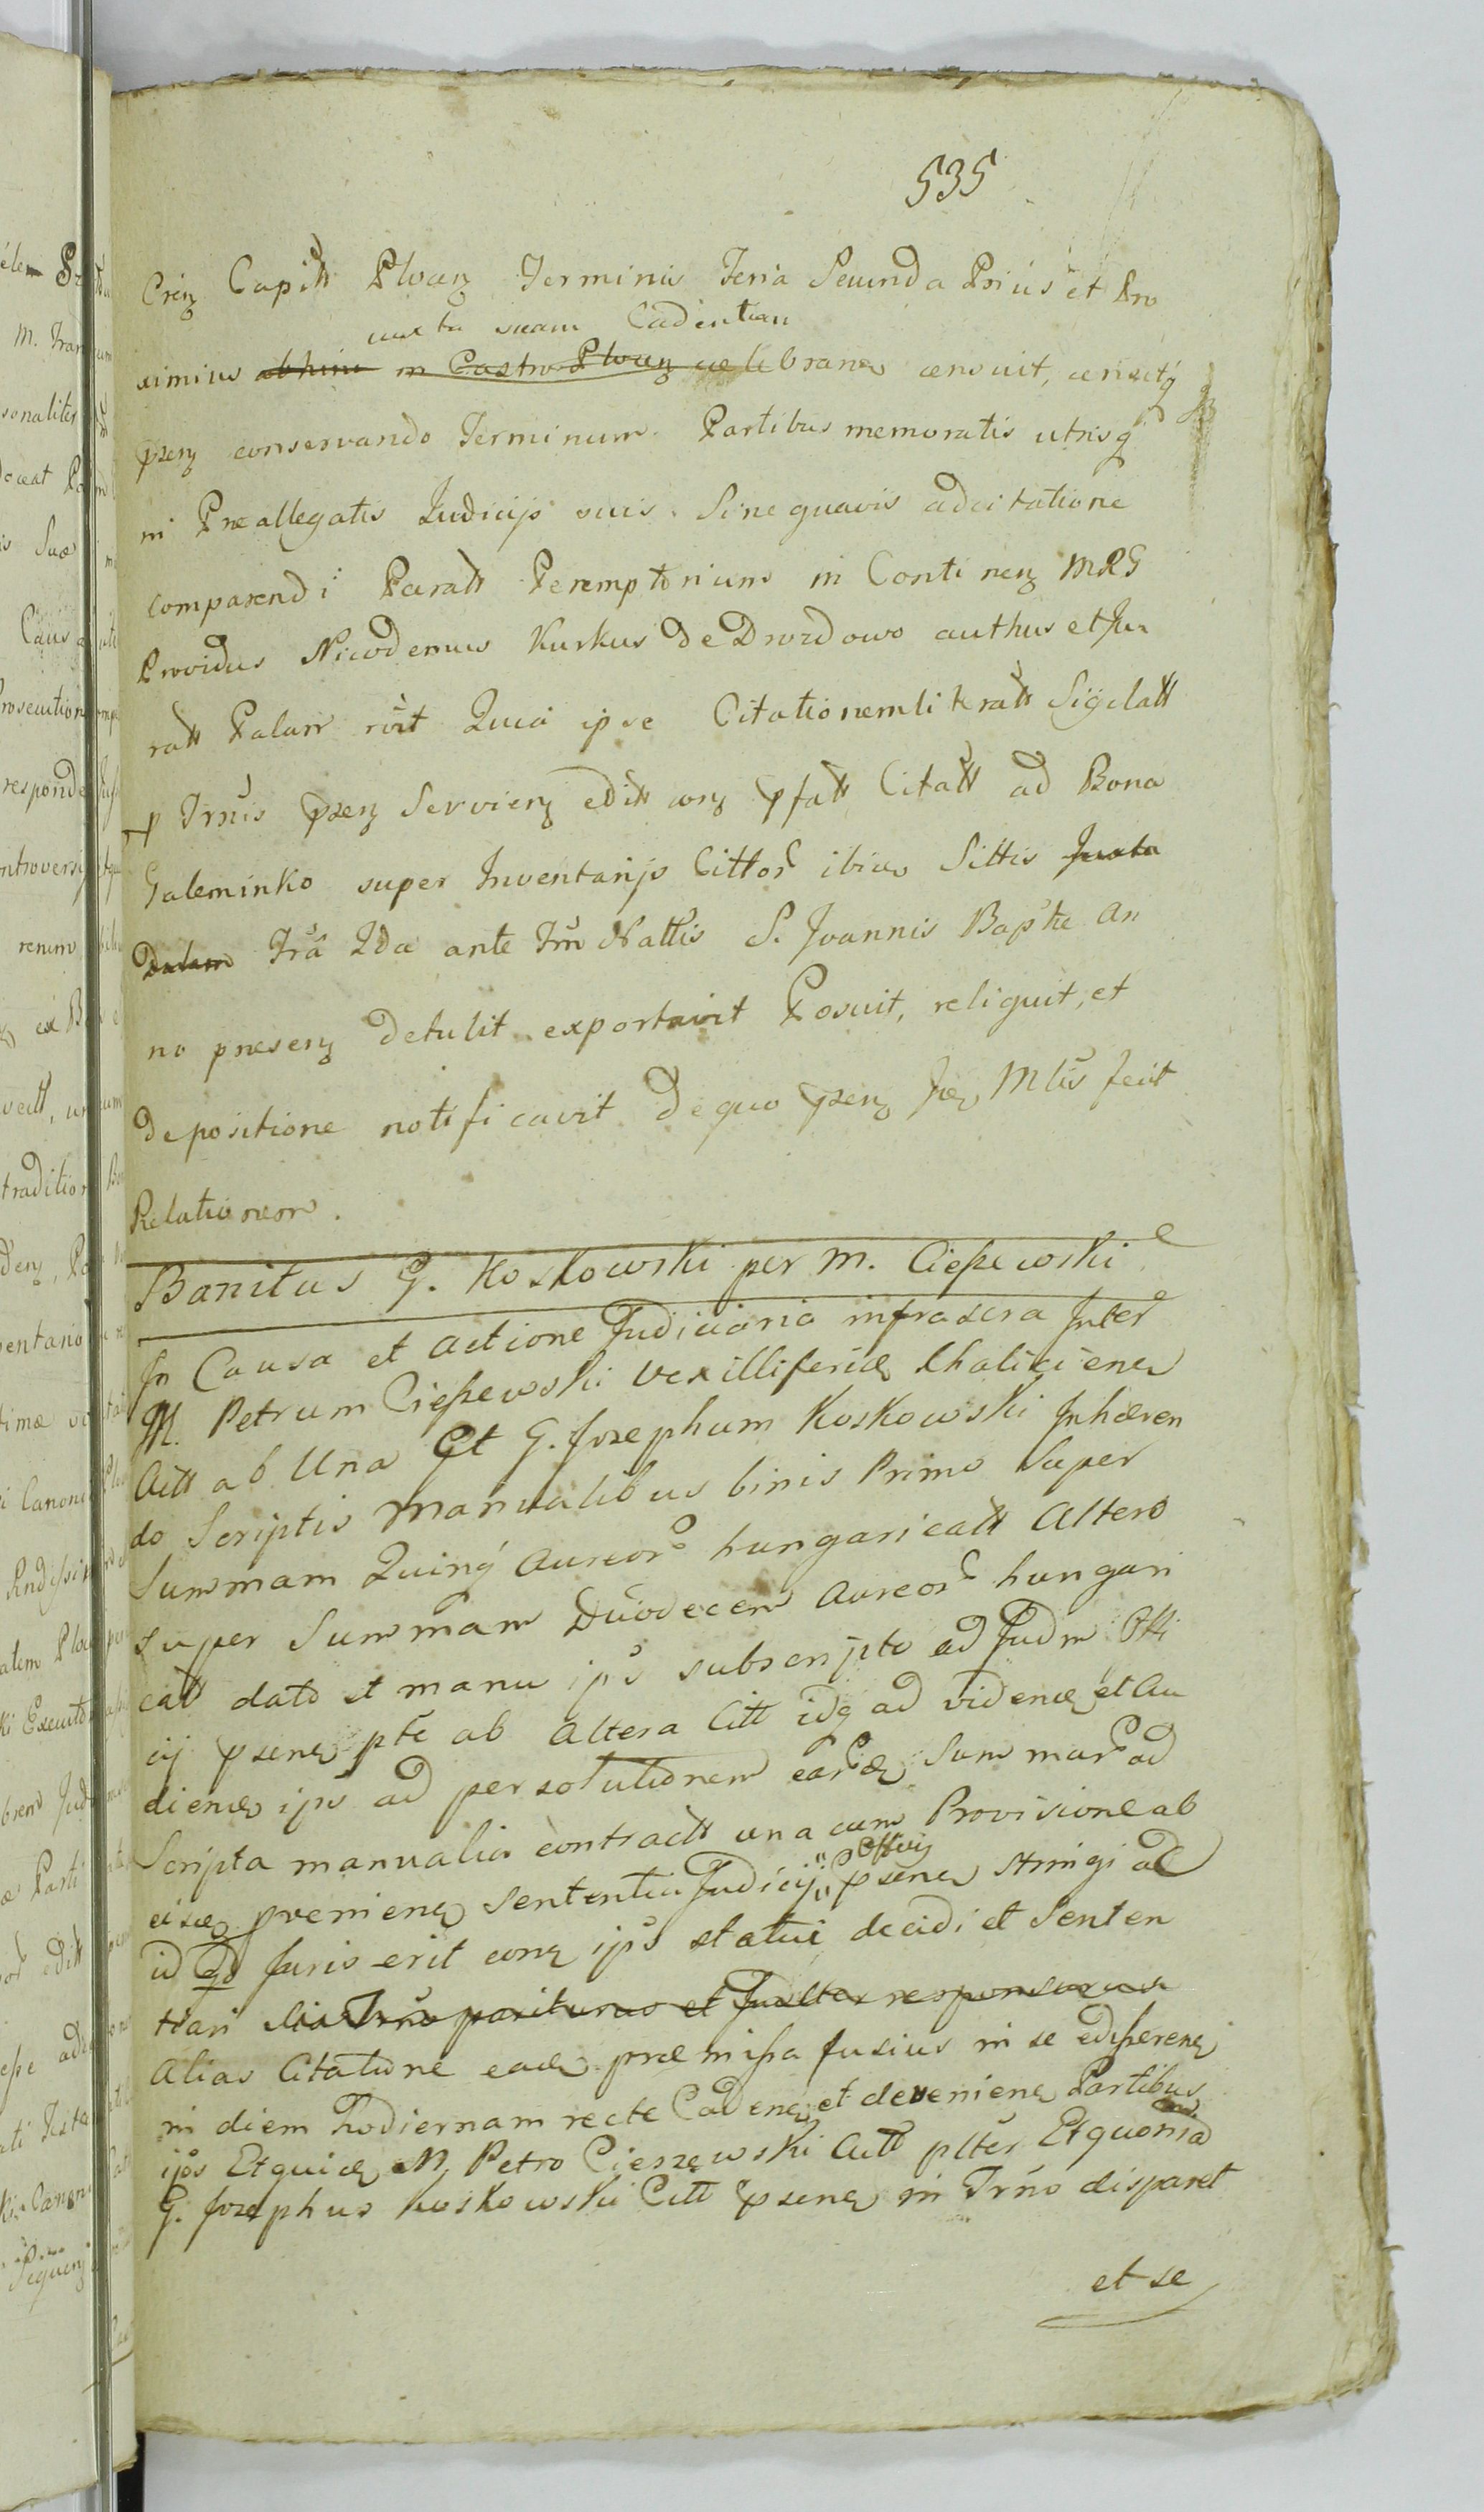 535
Cñeȝ Capitt Plocȝ Terminis Feria Secunda Prius et Pro
juxta suam Cadentiam
ximius abhinc in Castro Plocȝ celebranȝ censuit, censetq̃
pñseȝ conservando Terminum Partibus memoratis utrisq̃
in Præallegatis Judicijs suis Sine quavis adcitatione
comparendi Paratt Peremptorium in Contineȝ MRG
Providus Nicodemus Kurkus de Drozdowo authus et Ju
ratt Palam rvit Quia ipse Citationem litteratt Sigilatt
p Trnis pñseȝ Servieȝ editt coȝ pfatt Citatt ad Bona
Galeminko super Inventarijs Cittor ibiȝ Sittis Juxta
Datam Frã 2da ante Fm Nattis S. Joannis Baptæ An
no præseȝ detulit exportavit Posuit, reliquit, et
depositione notificavit de quo pñseȝ Jæȝ Mlis fecit
Relationem.
Banitus G. Koskowski per M. Cieszewski
In Causa et actione Judiciaria infrascra Inter
M. Petrum Cieszewski Vexilliferidȝ Chalicienȝ
Actt ab Una Et G. Josephum Koskowski Inhæren
do Scriptis manualibus binis Primo Super
Summam Quinq̃ Aureor hungaricatt Altero
super Summam Duodecem Aureor hungari
catt dato et manu ips subscripto ad Judm Offi
cij pñsenȝ pte ab Altera Citt idq̃ ad videnȝ et Au
dienȝ ips ad persolutionem earȝ Summar ad
Scripta manualia contractt una cum Provisione ab
eisȝ provenienȝ Sententia Judicij Officij pñsenȝ stringi ad
id qd Juris erit conȝ ips statui decidi et Senten
tiari alias Trno pariturus et Jualter responsurus
Alias Citatione eadȝ præmissa fusius in se edisserenȝ
in diem hodiernam recte Cadenȝ et devenienȝ Partibus
ips Et quidȝ M. Petro Cieszewski Actt plter Et quonia
G. Josephus Koskowski Citt pñsenȝ in Trno disparet
et se